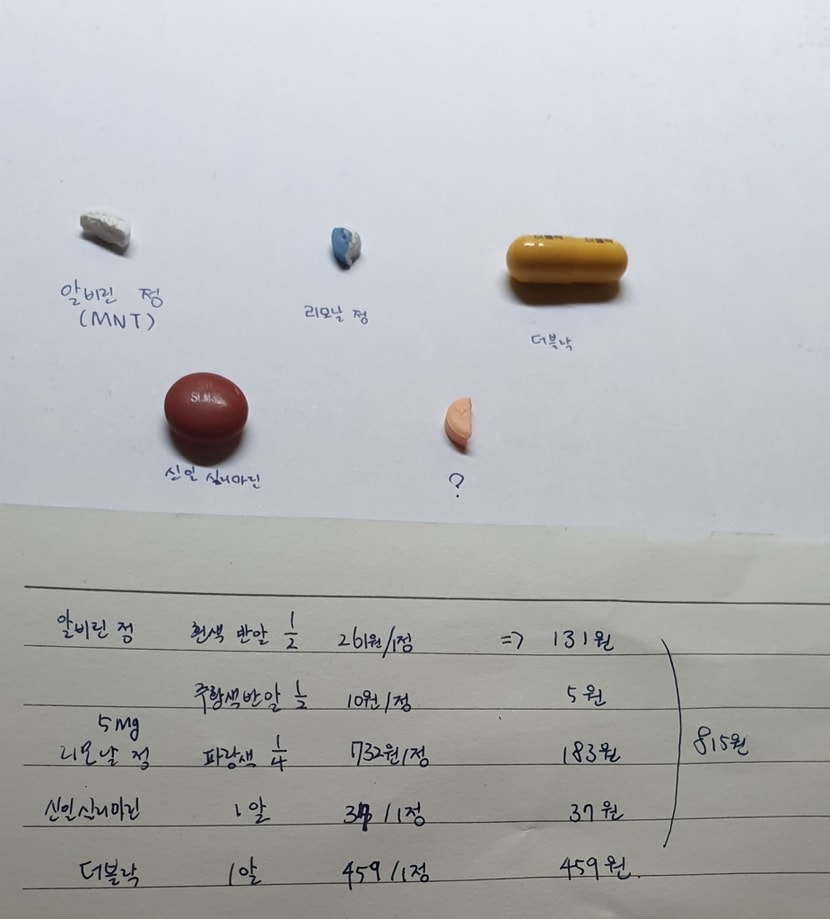 더블락 더블락
알비린 정
(MNT)
리모날 정
더블락
SLMS
신일 실리마린
?
알비린 정 흰색 반알 1/2 261원/1정 => 131원
주황색반알 1/2 10원/1정 5원
5mg
리모날 정 파랑색 1/4 732원/1정 183원
815원
신일실리마린 1알 37/1정 37원
더블락 1알 459/1정 459원.